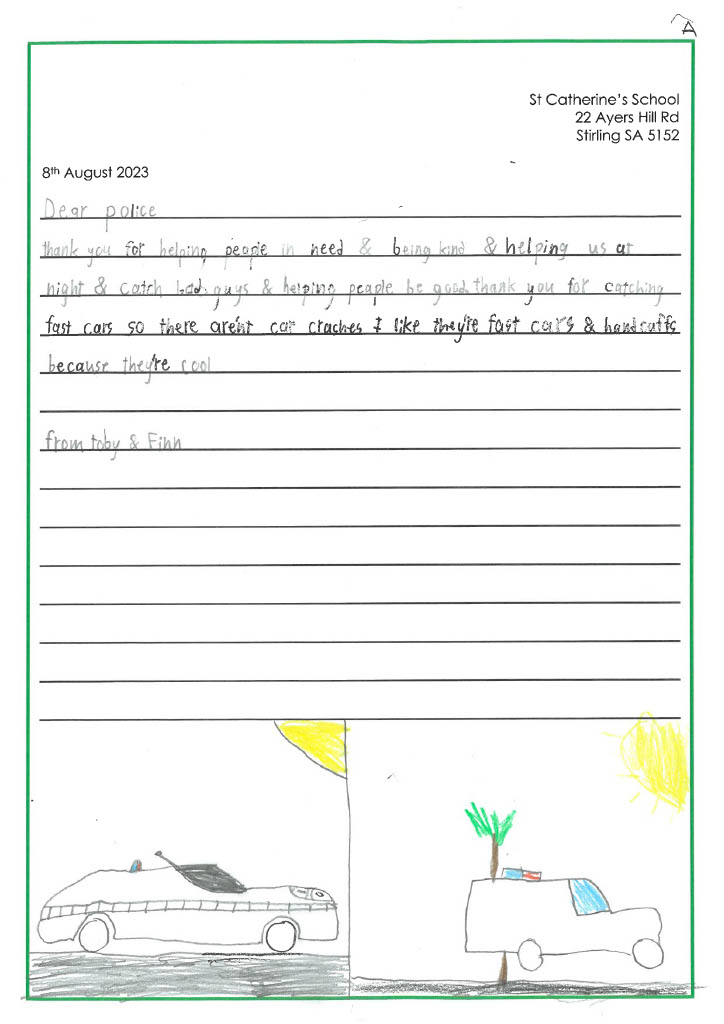 A
St Catherine's School
22 Ayers Hill Rd
Stirling SA 5152
8th August 2023
Dear police
thank you for helping people in need & being kind & helping us at
night & catch bad guys & helping people be good thank you for catching
fast cars so there aren't car craches I like they're fast cars & handcuffs
because they're cool
from toby & Finn